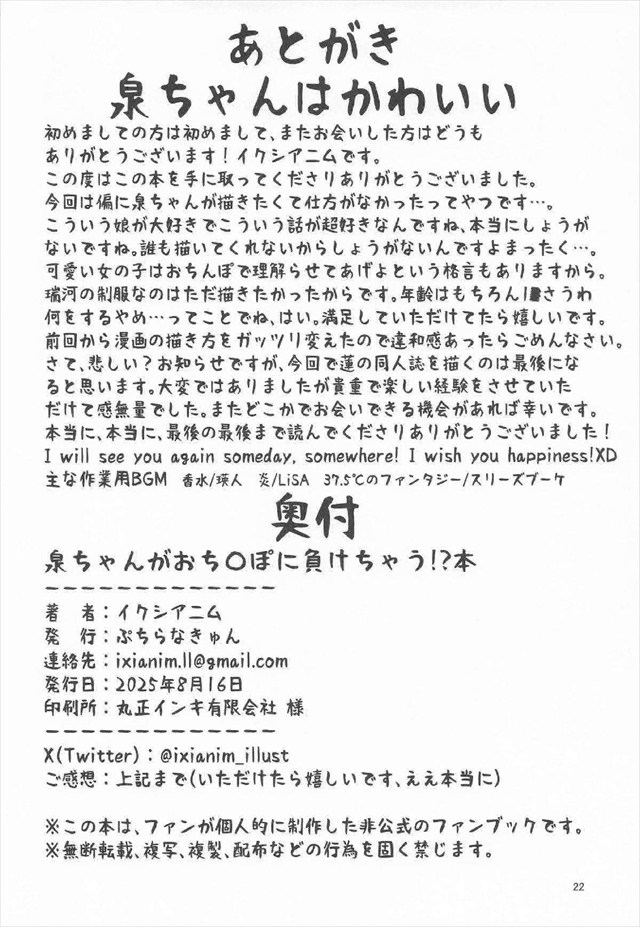 あとがき
泉ちゃんはかわいい
初めましての方は初めまして、またお会いした方はどうも
ありがとうございます！イクシアニムです。
この度はこの本を手に取ってくださりありがとうございました。
今回は偏に泉ちゃんが描きたくて仕方がなかったってやつです…。
こういう娘が大好きでこういう話が超好きなんですね、本当にしょうが
ないですね。誰も描いてくれないからしょうがないんですよまったく…。
可愛い女の子はおちんぽで理解らせてあげよという格言もありますから。
瑞河の制服なのはただ描きたかったからです。年齢はもちろん1■さうわ
何をするやめ…ってことでね、はい。満足していただけてたら嬉しいです。
前回から漫画の描き方をガッツリ変えたので違和感あったらごめんなさい。
さて、悲しい？お知らせですが、今回で蓮の同人誌を描くのは最後にな
ると思います。大変ではありましたが貴重で楽しい経験をさせていた
だけて感無量でした。またどこかでお会いできる機会があれば幸いです。
本当に、本当に、最後の最後まで読んでくださりありがとうございました！
I will see you again someday, somewhere! I wish you happiness!XD
主な作業用BGM 香水/瑛人 炎/LiSA 37.5℃のファンタジー/スリーズブーケ
奥付
泉ちゃんがおち〇ぽに負けちゃう!?本
－－－－－－－－－－－－－
著　者：イクシアニム
発　行：ぷちらなきゅん
連絡先：ixianim.ll@gmail.com
発行日：2025年8月16日
印刷所：丸正インキ有限会社 様
－－－－－－－－－－－－－
X(Twitter)：@ixianim_illust
ご感想：上記まで(いただけたら嬉しいです、ええ本当に)
※この本は、ファンが個人的に制作した非公式のファンブックです。
※無断転載、複写、複製、配布などの行為を固く禁じます。
22